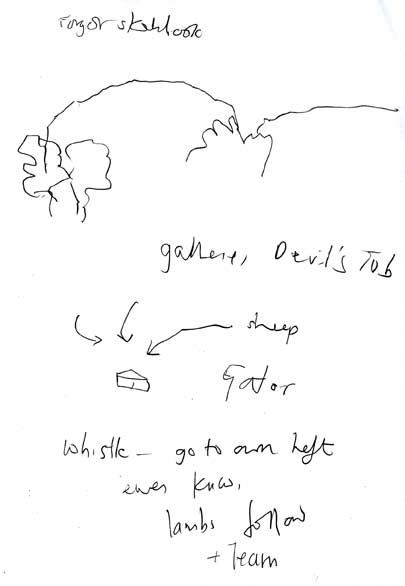 Forgot sketchbook
Devil's Tub
sheep
Gator
whistle – go to own heft
ewes know,
lambs follow
+ learn